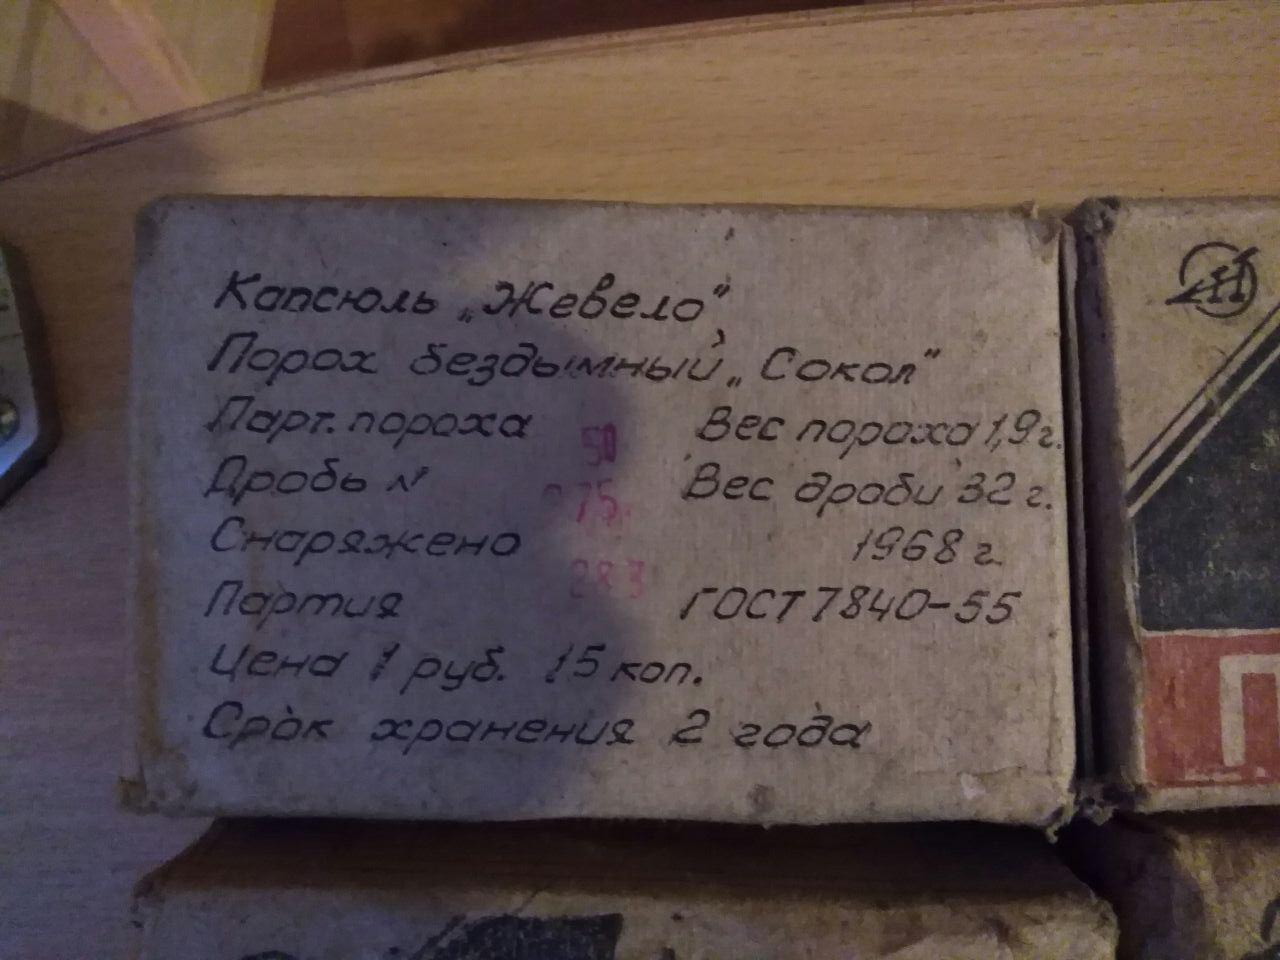 Капсюль „Жевело”,
Порох бездымный „Сокол”
Парт. пороха 50 Вес пороха 1,9 г.
Дробь N 75 Вес дроби 32 г.
Снаряжено 1968 г.
283
Партия ГОСТ 7840-55
Цена 1 руб. 15 коп.
Срок хранения 2 года
П